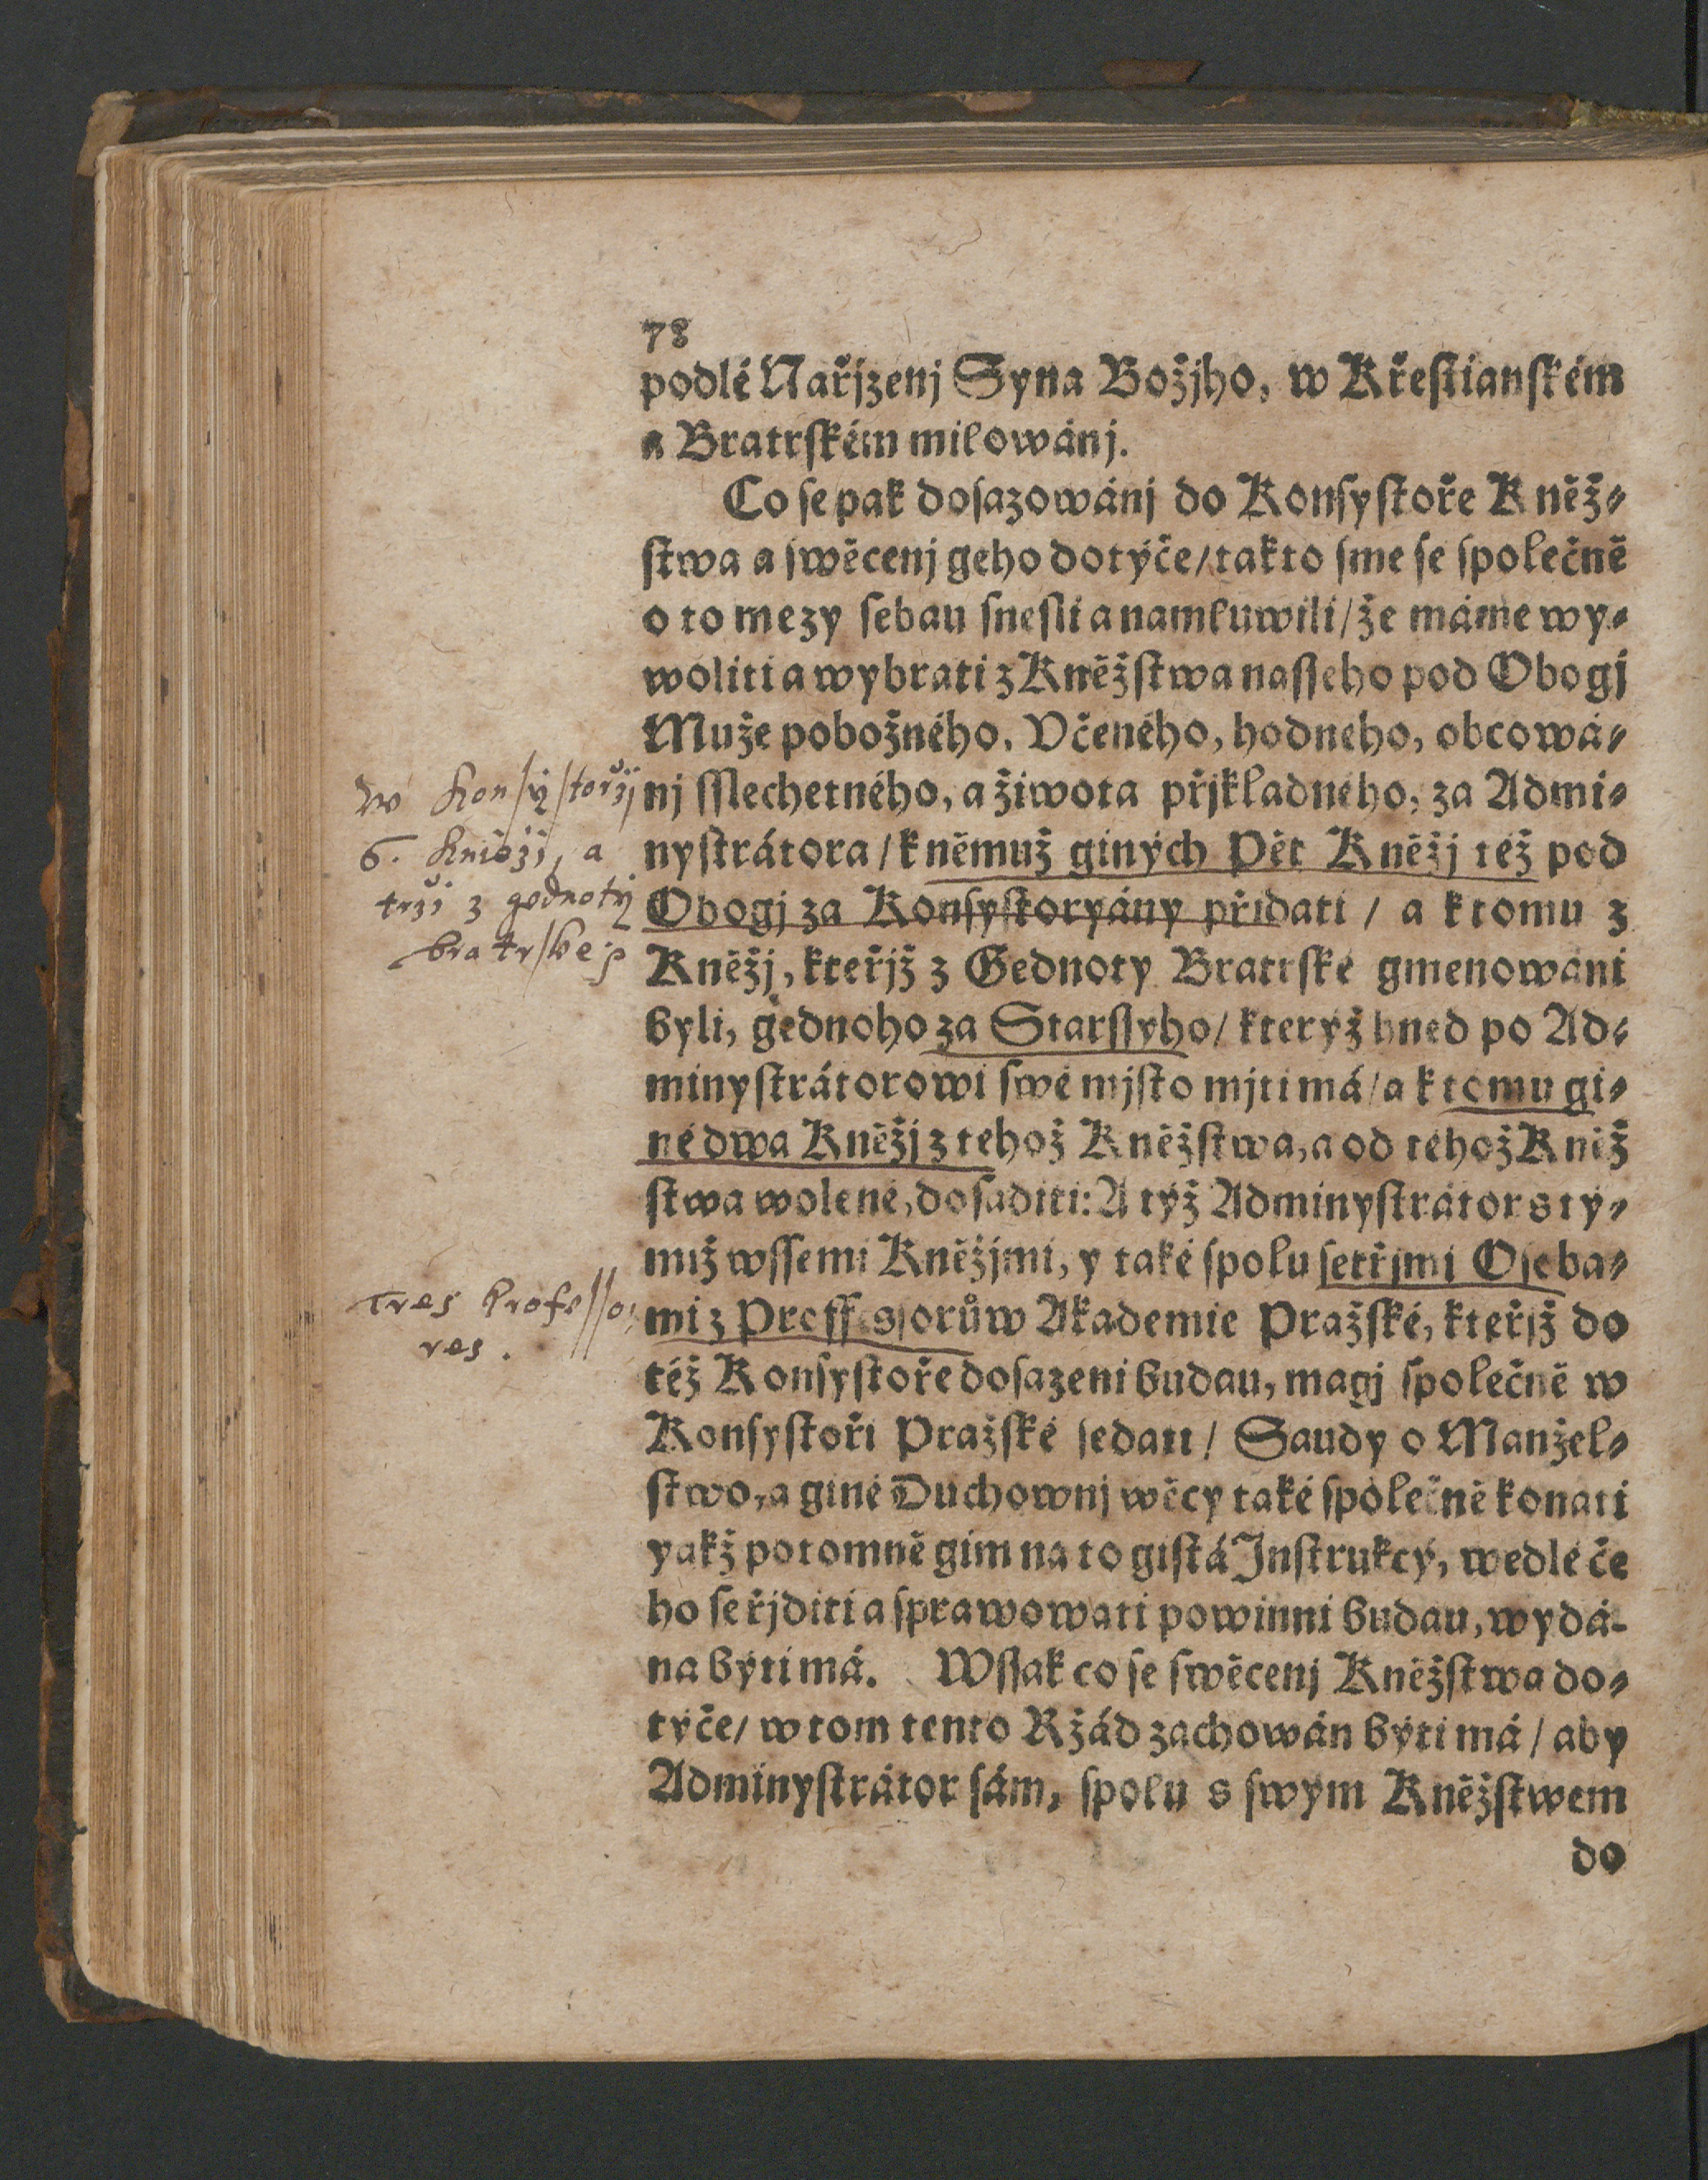 78
podlé Nařjzenj Syna Božjho, w Křestianském
a Bratrském milowánj.
Co se pak dosazowánj do Konsystoře Kněž-
stwa a swěcenj geho dotýče / takto sme se společně
o to mezy sebau snesli a namluwili / že máme wy-
woliti a wybrati z Kněžstwa nasseho pod Obogj
Muže pobožného, Včeného, hodného, obcowá-
nj sslechetného, a žiwota přjkladného, za Admi-
nystrátora / k němuž giných Pět Kněžj též pod
Obogj za Konsystoryány přidati / a k tomu z
Kněžj, kteřjž z Gednoty Bratrské gmenowáni
byli, gednoho za Starssyho / kterýž hned po Ad-
minystrátorowi swé mjsto mjti má / a k tomu gi-
né dwa Kněžj z téhož Kněžstwa, a od téhož Kněž
stwa wolené, dosaditi: A týž Adminystrátor s tý-
muž wssemi Kněžjmi, y také spolu se třjmi Osoba-
mi z Proffessorůw Akademie Pražské, kteřjž do
též Konsystoře dosazeni budau, magj společně w
Konsystoři Pražské sedati / Saudy o Manžel-
stwo, a giné Duchownj wěcy také společně konati
yakž potomně gim na to gistá Instrukcý, wedlé če
ho se řjditi a sprawowati powinni budau, wydá-
na býti má. Wssak co se swěcenj Kněžstwa do-
týče / w tom tento Ržád zachowán býti má / aby
Adminystrátor sám, spolu s swým Kněžstwem
do
W Konsystoržj
6. Kniežj, a
trži z gednoty
bratrskej
Tres Professo
res.